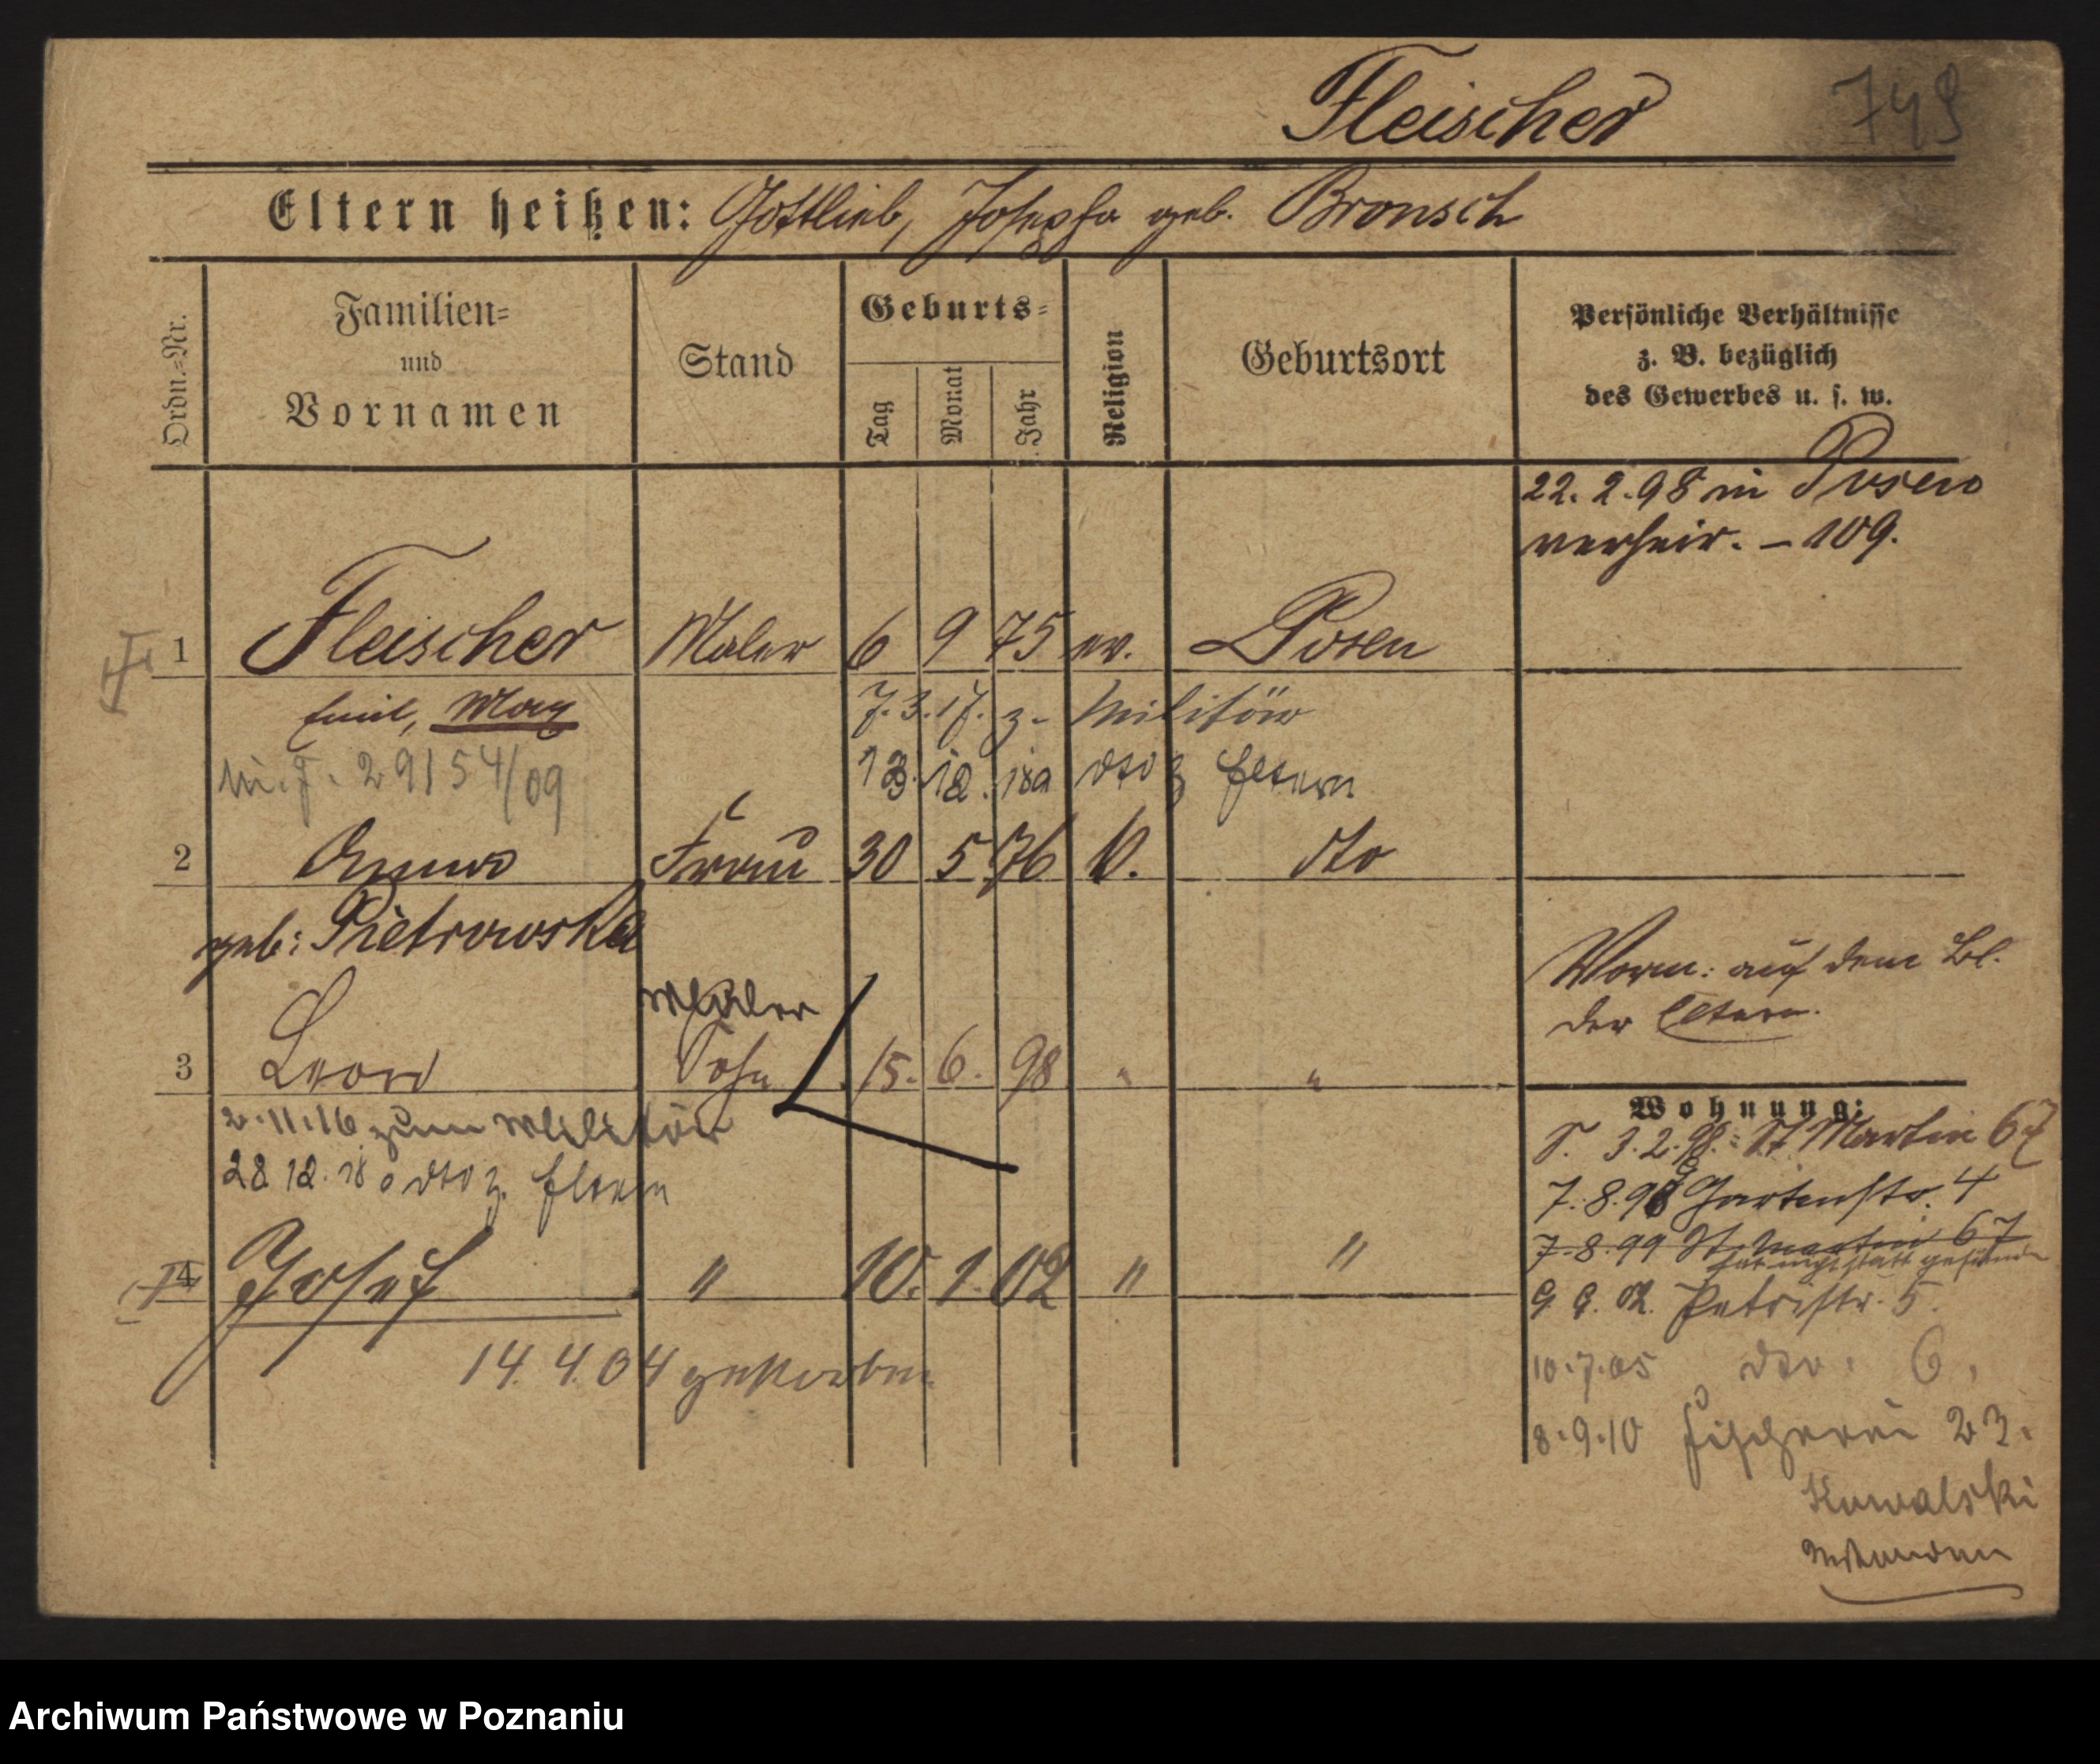 Fleischer
749
Eltern heißen: Gottlieb, Josepha geb. Bronsch
Ordn.-Nr.
Familien-
und
Vornamen
Stand
Geburts-
Tag
Monat
Jahr
Religion
Geburtsort
Persönliche Verhältnisse
z. B. bezüglich
des Gewerbes u. s. w.
22. 2. 98 in Posen
verheir. – 109.
1 Fleischer Maler 6 9 75 ev. Posen
Emil, Max
7. 3. 17. z. Militär
29154/09
13. 12. 18 dto z Eltern
2 Anna Frau 30 5 76 k. dto
geb: Pietrowska
Vorm: auf dem Bl.
der Eltern.
Maler
3 Leon Sohn 15. 6. 98 " "
2.11.16 zum Militär
28 12. 18 dto z. Eltern
4 Josef " 10. 1. 02 " "
14. 4. 04 gestorben
Wohnung:
S. 3. 2. 98. St. Martin 67
7. 8. 98 Gartenstr. 4
7. 8. 99 St. Martin 67
hat nicht statt gefunden
9. 9. 02. Petristr. 5.
10.7.05 dto. 6.
8.9.10 Fischerei 23.
Kowalski
Archiwum Państwowe w Poznaniu